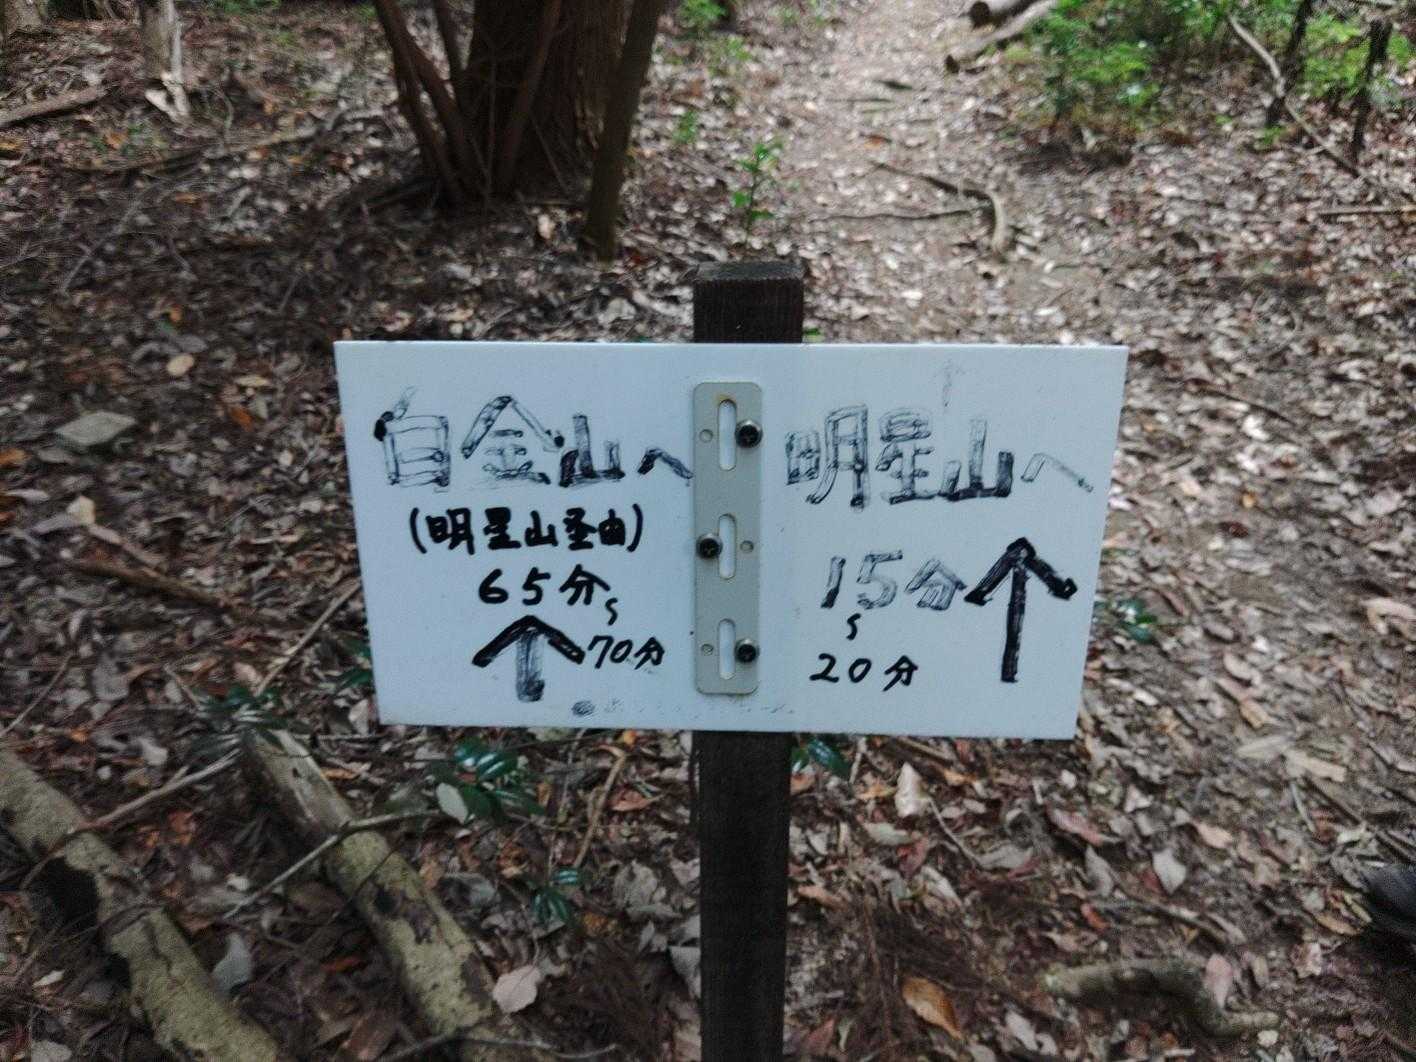 白金山へ
(明星山経由)
65分
〜
70分
明星山へ
15分
〜
20分